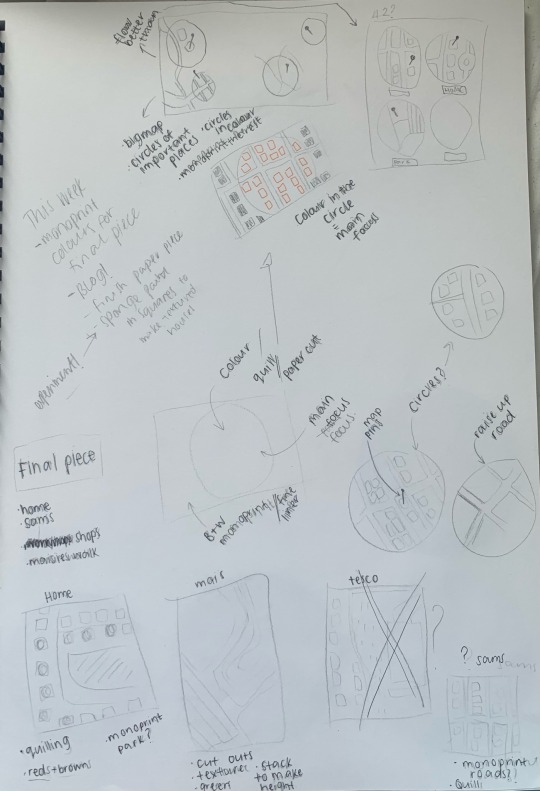 flow better
A2?
Home
· big map
· circles of important places
· circles in colour
Colour in the circle
=
main focus
This Week
- monoprint colours for final piece
- Blog!
- finish paper piece
- sponge paint in squares to make textured houses
experiment!
Colour
quill/
paper cut
main
focus
map pins
circles?
raise up road
B+W monoprint/fine liner
Final piece
· home
· sams
shops
Home
tesco
?
? sams
· quilling
· reds + browns
· monoprint park?
· cut outs
· textured
· green
· stack to make height
· monoprint roads?!
· Quilli